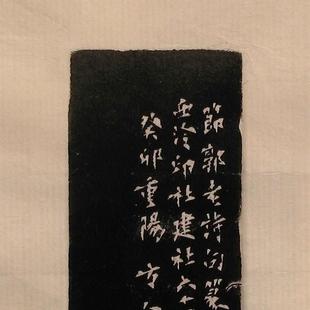 節郭老詩句篆
西泠印社建社六十
癸卯重陽 方